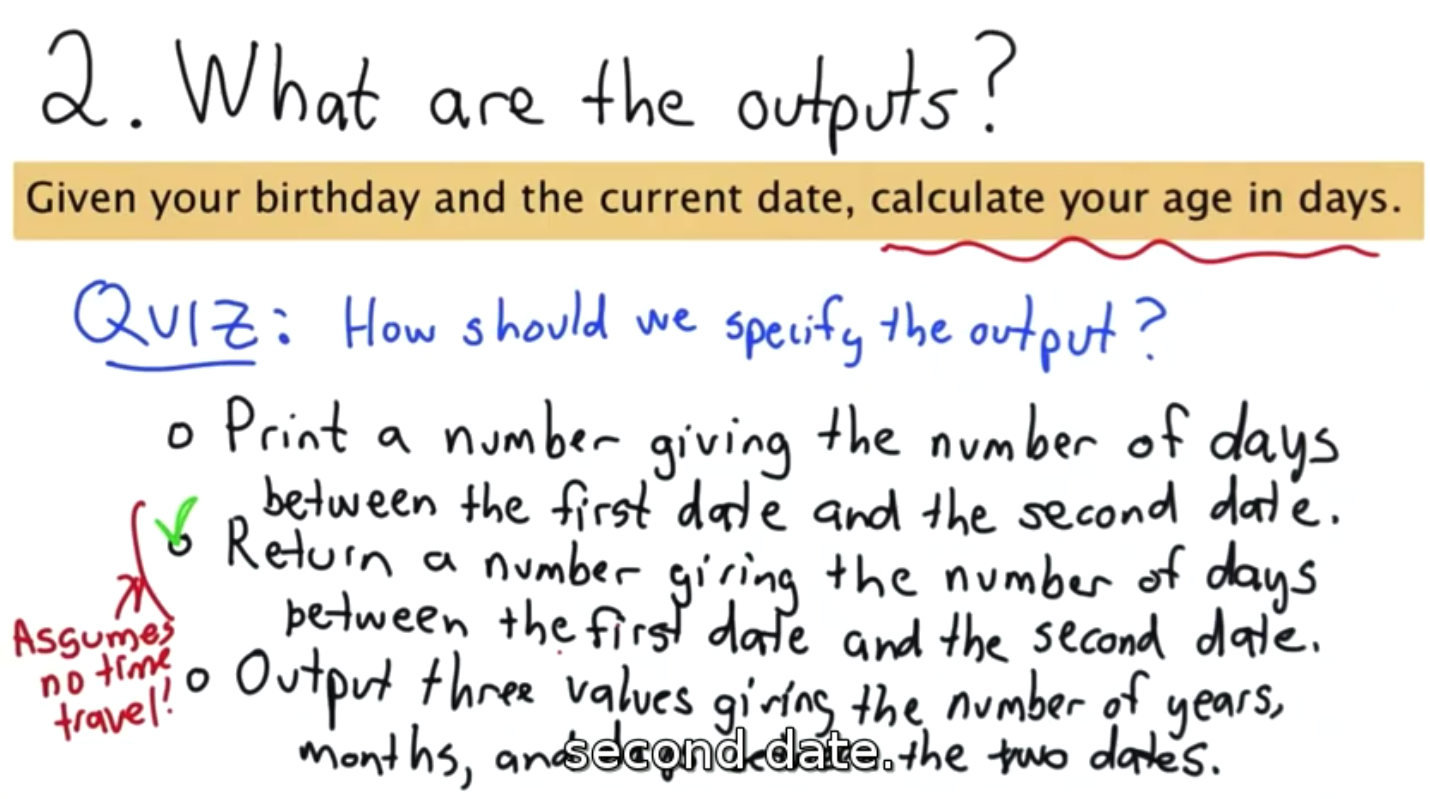 2. What are the outputs?
Given your birthday and the current date, calculate your age in days.
QUIZ: How should we specify the output?
o Print a number giving the number of days
between the first date and the second date.
o Return a number giving the number of days
between the first date and the second date.
Assumes
no time
travel!
o Output three values giving the number of years,
months, and the two dates.
second date.